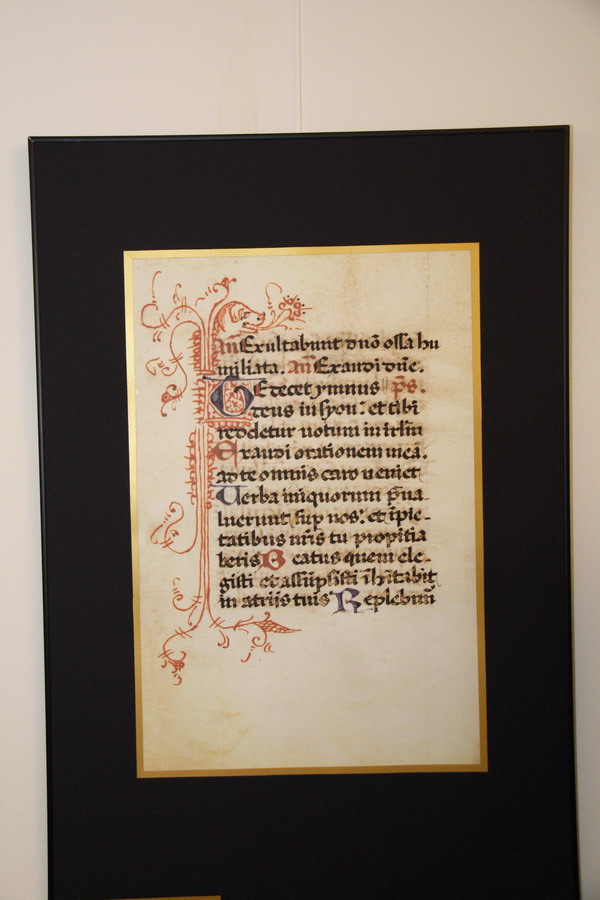 añ Exultabunt dnō ossa hu
miliata. añ Exaudi dñe.
TE decet ymnus p̄s.
deus in syon: et tibi
reddetur uotum in irlm̄
Exaudi orationem meā.
ad te omnis caro ueniet
Verba iniquorum p̄ua
luerunt sup nos: et īpie-
tatibus nr̄is tu propitia
beris Beatus quem ele-
gisti et assūpsisti īhītabit
in atriis tuis Replebim̄